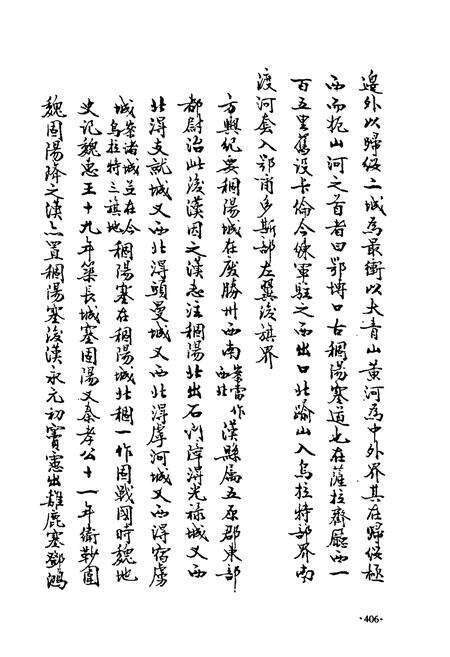 邊外以歸綏二城為最衝以大青山黃河為中外界其在歸綏極
西而扼山河之首者曰鄂博口古稒陽塞道也在薩拉齊廳西一
百五里舊設卡倫今練軍駐之西出口北踰山入烏拉特部界南
渡河套入鄂爾多斯部左翼後旗界
方輿紀要稒陽城在廢勝州西南案當作西北漢縣屬五原郡東部
都尉治此後漢因之漢志注稒陽北出石門障得光祿城又西
北得支就城又西北得頭曼城又西北得虖河城又西得宿虜
城案諸城立在今烏拉特三旗地稒陽塞在稒陽城北稒一作固戰國時魏地
史記魏惠王十九年築長城塞固陽又秦孝公十一年衞鞅圍
魏固陽降之漢亦置稒陽塞後漢永元初竇憲出雞鹿塞鄧鴻
·406·